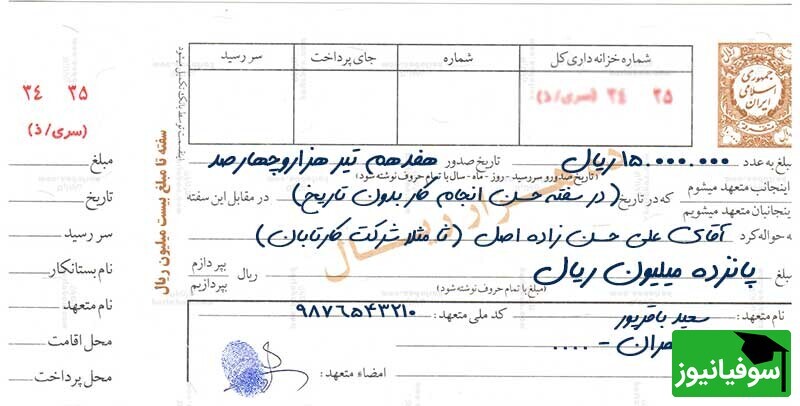 جمهوری
اسلامی
ایران
شماره خزانه داری کل
شماره
جای پرداخت
سر رسید
۳۵ ۳۴ (سری/ذ)
۳۵ ۳۴
(سری/ذ)
سفته تا مبلغ بیست میلیون ریال
مبلغ به عدد ۱۵.۰۰۰.۰۰۰ ریال تاریخ صدور هفدهم تیر هزار و چهار صد
(تاریخ صدور و سررسید - روز - ماه - سال با تمام حروف نوشته شود)
اینجانب متعهد میشوم
اینجانبان متعهد میشویم
که در تاریخ (در سفته حسن انجام کار بدون تاریخ) در مقابل این سفته
به حواله کرد آقای علی حسن زاده اصل (تا مثلا شرکت کارتابان)
مبلغ پانزده میلیون ریال ریال بپردازم
بپردازیم
(مبلغ با تمام حروف نوشته شود)
نام متعهد: سعید باقرپور کد ملی متعهد: ۹۸۷۶۵۴۳۲۱۰
امضاء متعهد:
مبلغ
تاریخ
سر رسید
نام بستانکار
نام متعهد
محل اقامت
محل پرداخت
سوفیانیوز